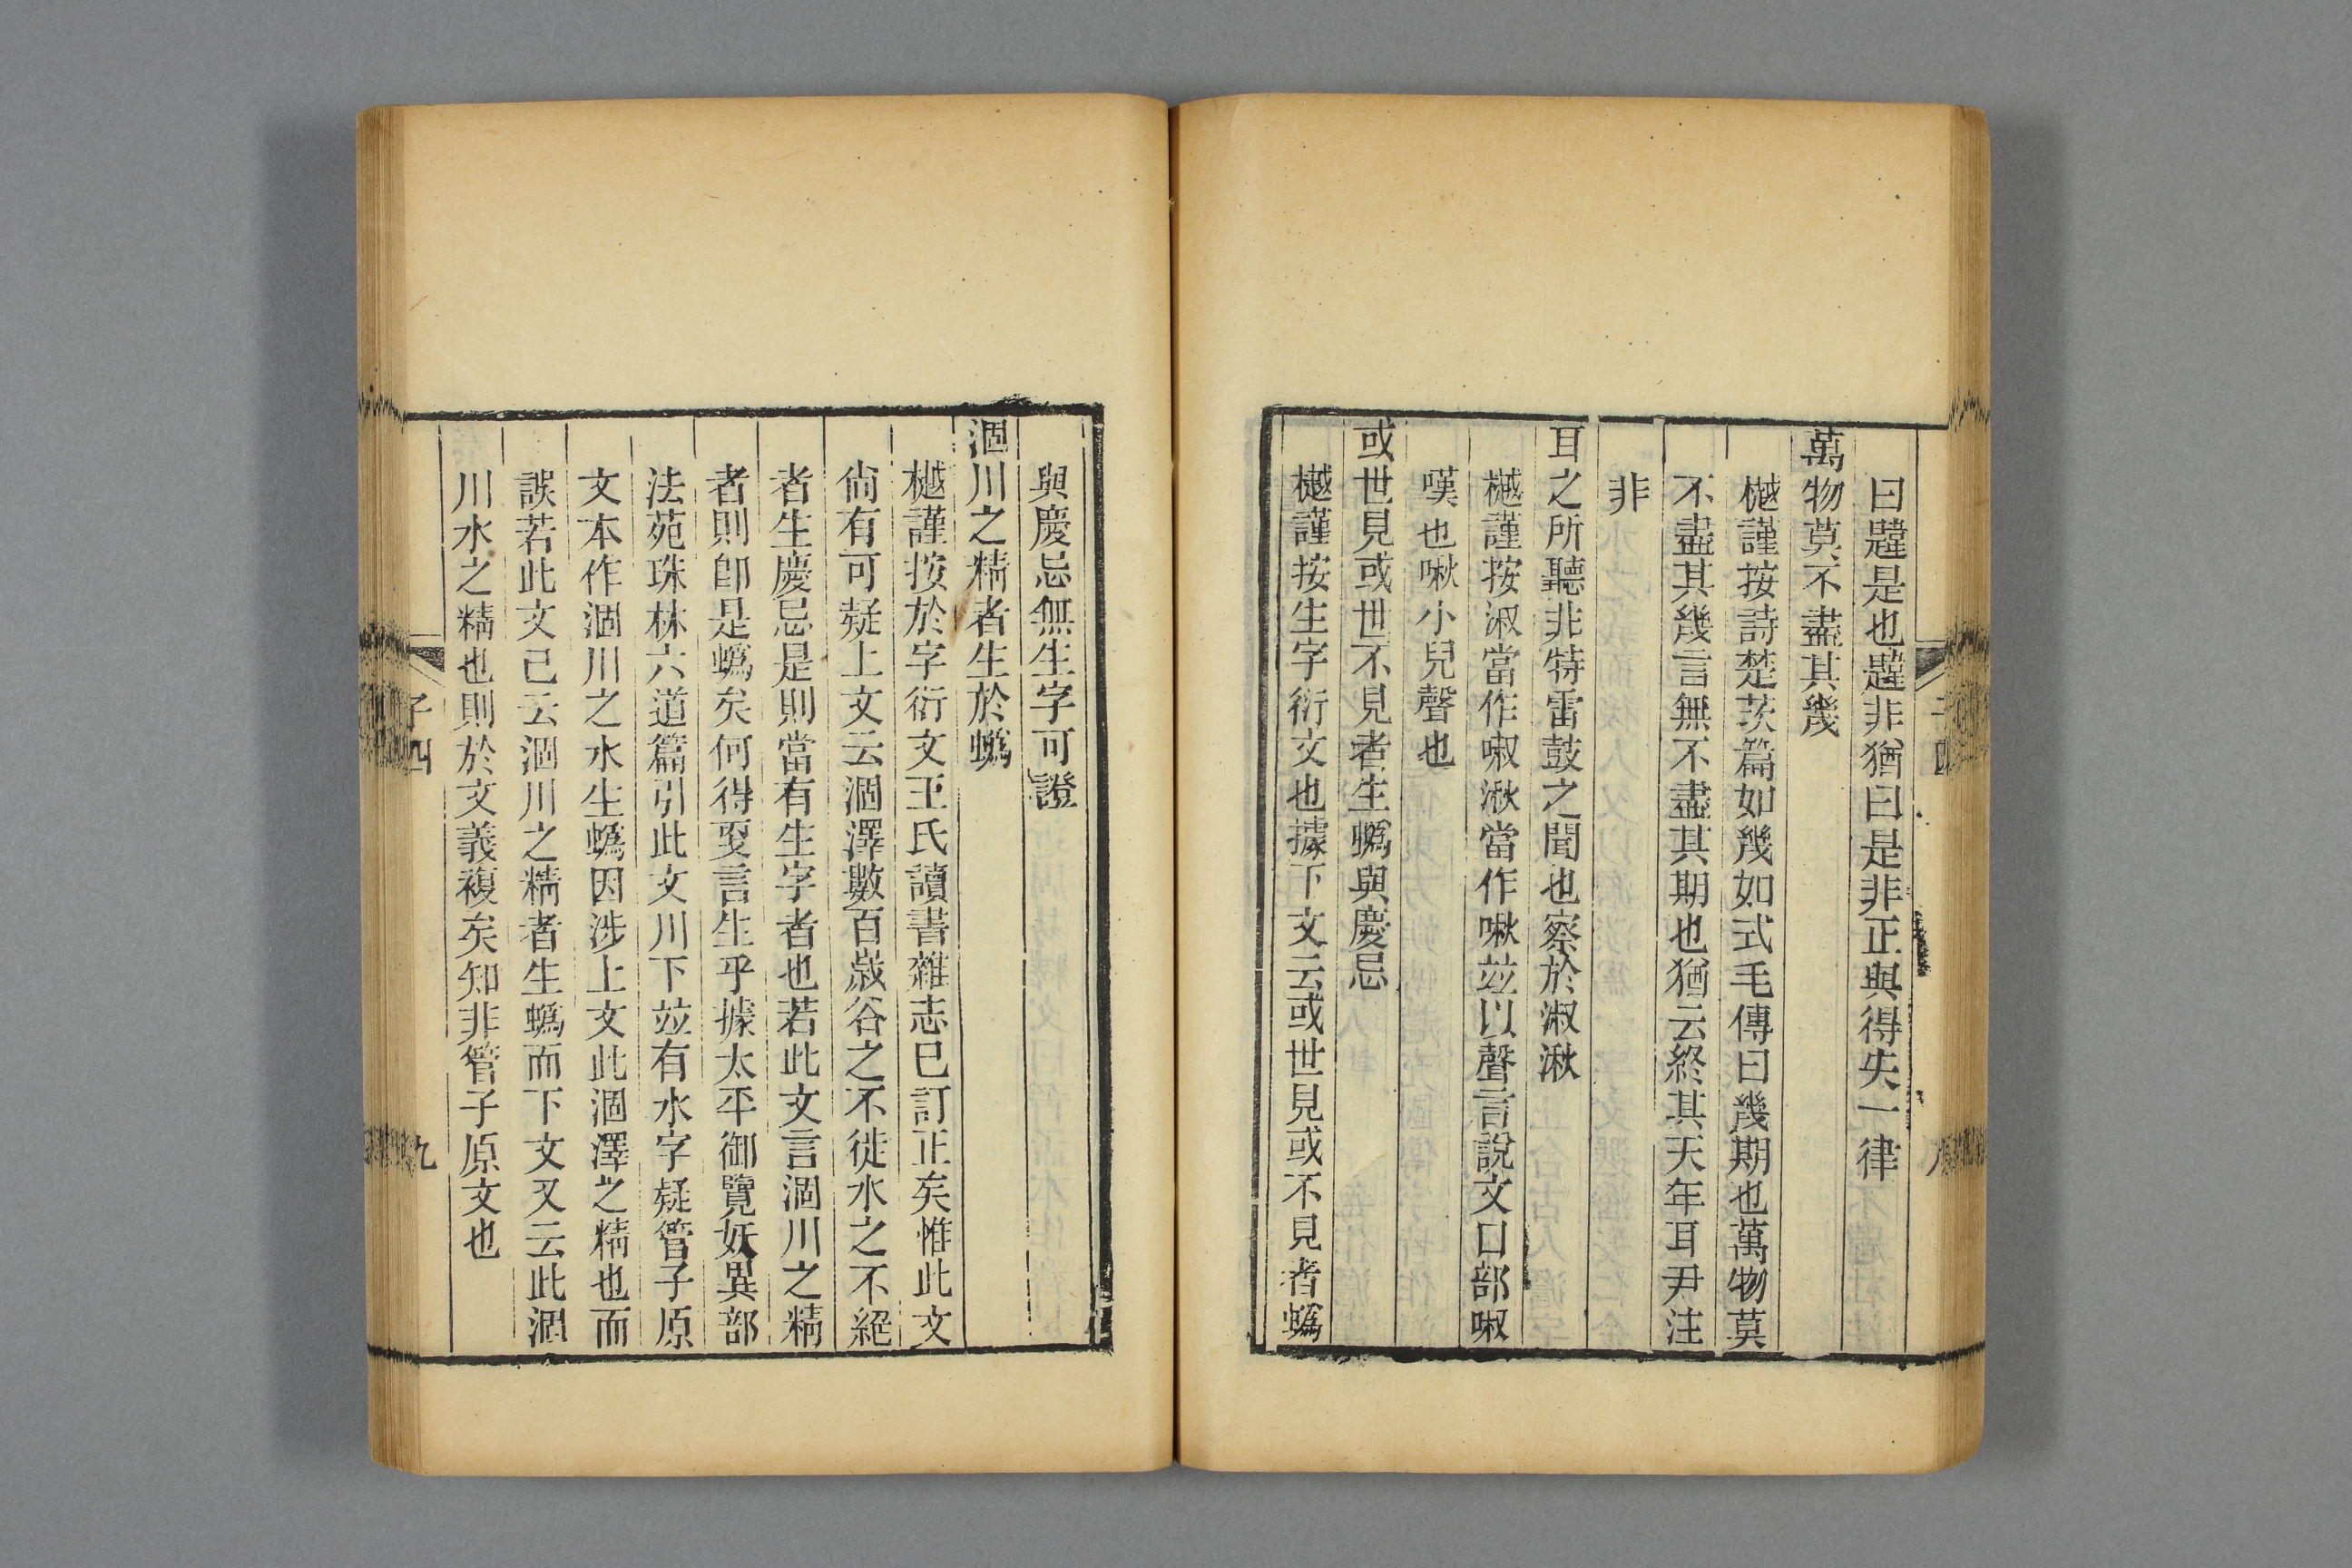 曰韙是也韙非猶曰是非正與得失一律
萬物莫不盡其幾
樾謹按詩楚茨篇如幾如式毛傳曰幾期也萬物莫
不盡其幾言無不盡其期也猶云終其天年耳尹注
非
耳之所聽非特雷鼓之聞也察於淑湫
樾謹按淑當作啾湫當作啾竝以聲言說文口部啾
嘆也啾小兒聲也
或世見或世不見者生蟡與慶忌
樾謹按生字衍文也據下文云或世見或不見者蟡
與慶忌無生字可證
涸川之精者生於蟡
樾謹按於字衍文王氏讀書雜志已訂正矣惟此文
尙有可疑上文云涸澤數百歲谷之不徙水之不絕
者生慶忌是則當有生字者也若此文言涸川之精
者則卽是蟡矣何得更言生乎據太平御覽妖異部
法苑珠林六道篇引此文川下竝有水字疑管子原
文本作涸川之水生蟡因涉上文此涸澤之精也而
誤若此文已云涸川之精者生蟡而下文又云此涸
川水之精也則於文義複矣知非管子原文也
子四
九